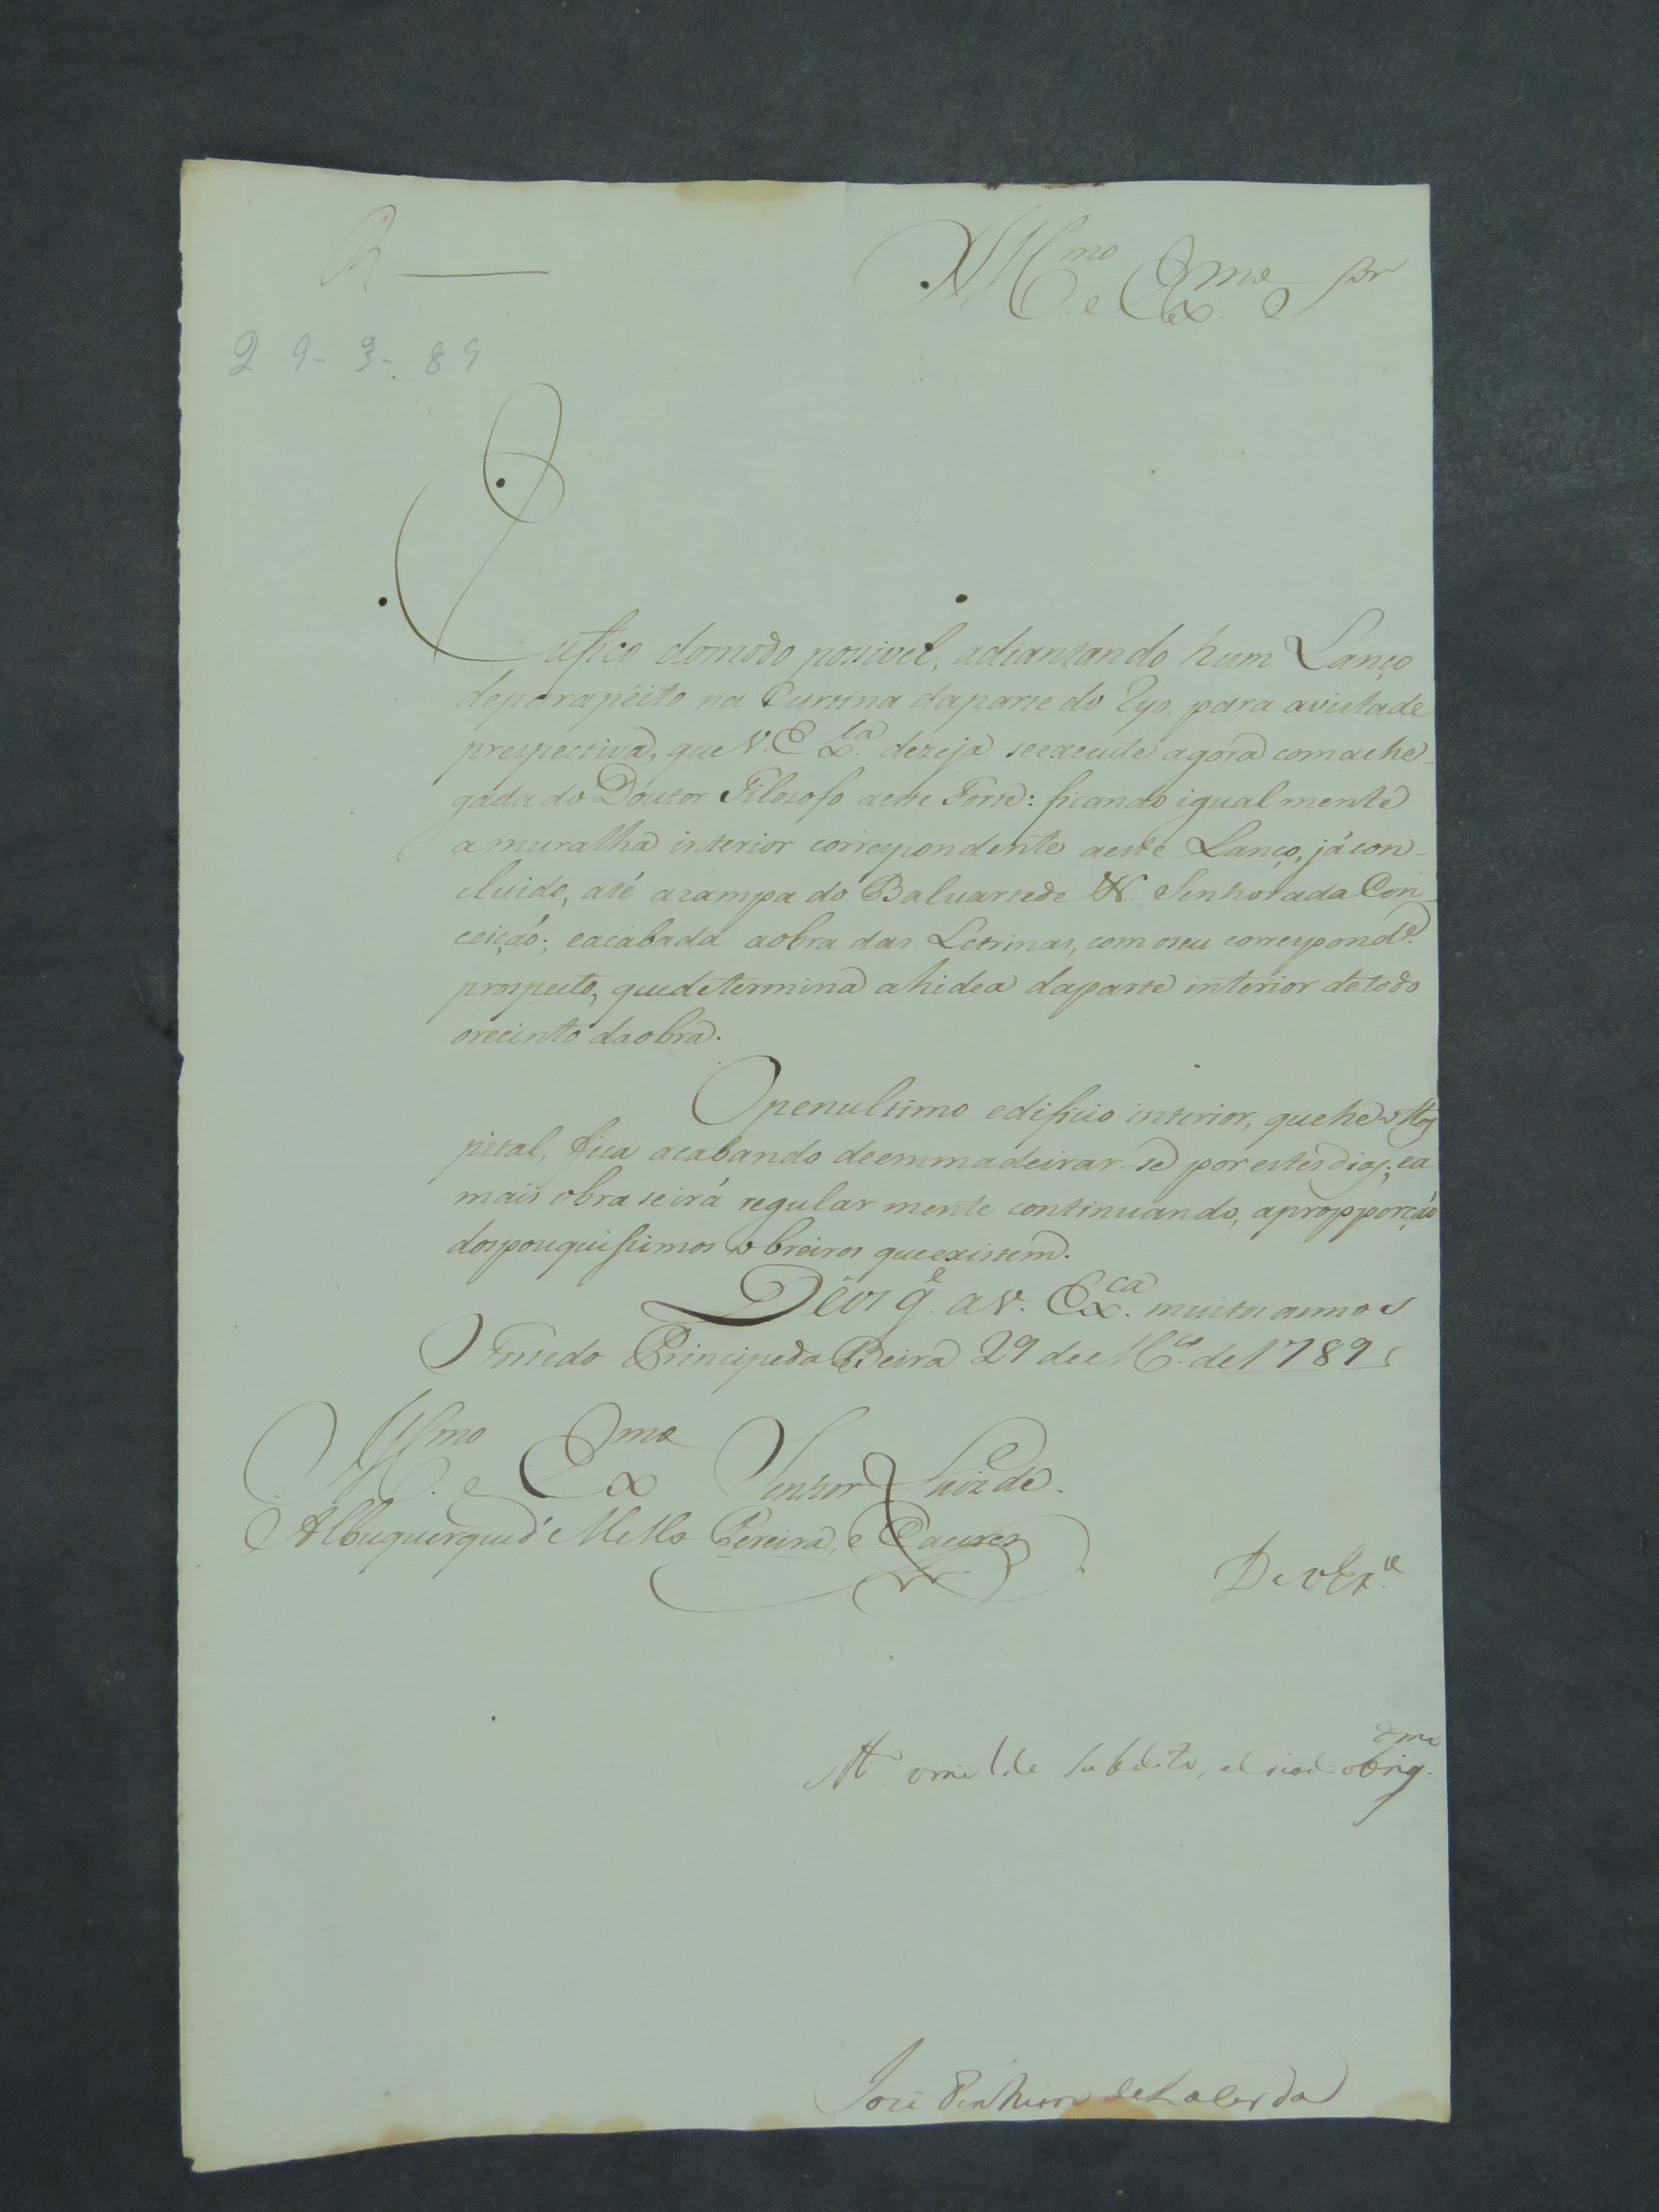 R
Ill.mo e Ex.mo Sor
29-3-89
Eu fico do modo possivel, adiantando hum Lanço
de parapeito na Curtina da parte do Ryo, para a vista de
prespectiva, que V. Ex.ca dezeja se execute agora com a che-
gada do Doutor Filosofo a este Forte: ficando igualmente
a muralha interior correspondente a este Lanço, já con-
cluido, até a rampa do Baluarte de N. Senhora da Con-
ceição; e acabada a obra das Letrinas, com o seu correspond.e
prospecto, que determina a hidea da parte interior de todo
o recinto da obra.
O penultimo edificio interior, que he o Hos
pital, fica acabando de emmadeirar-se por estes dias; e a
mais obra se irá regularmente continuando, a propporção
dos pouquissimos obreiros que existem.
Deos g.e a V. Ex.ca muitos annos
Forte do Principe da Beira 29 de M.ço de 1789
Ill.mo e Ex.mo Senhor Luiz de
Albuquerque d' Mello Pereira, e Caceres
De V Ex.ca
M.to omilde subdito, e criado obrig.dmo
José Pinheiro de Lacerda